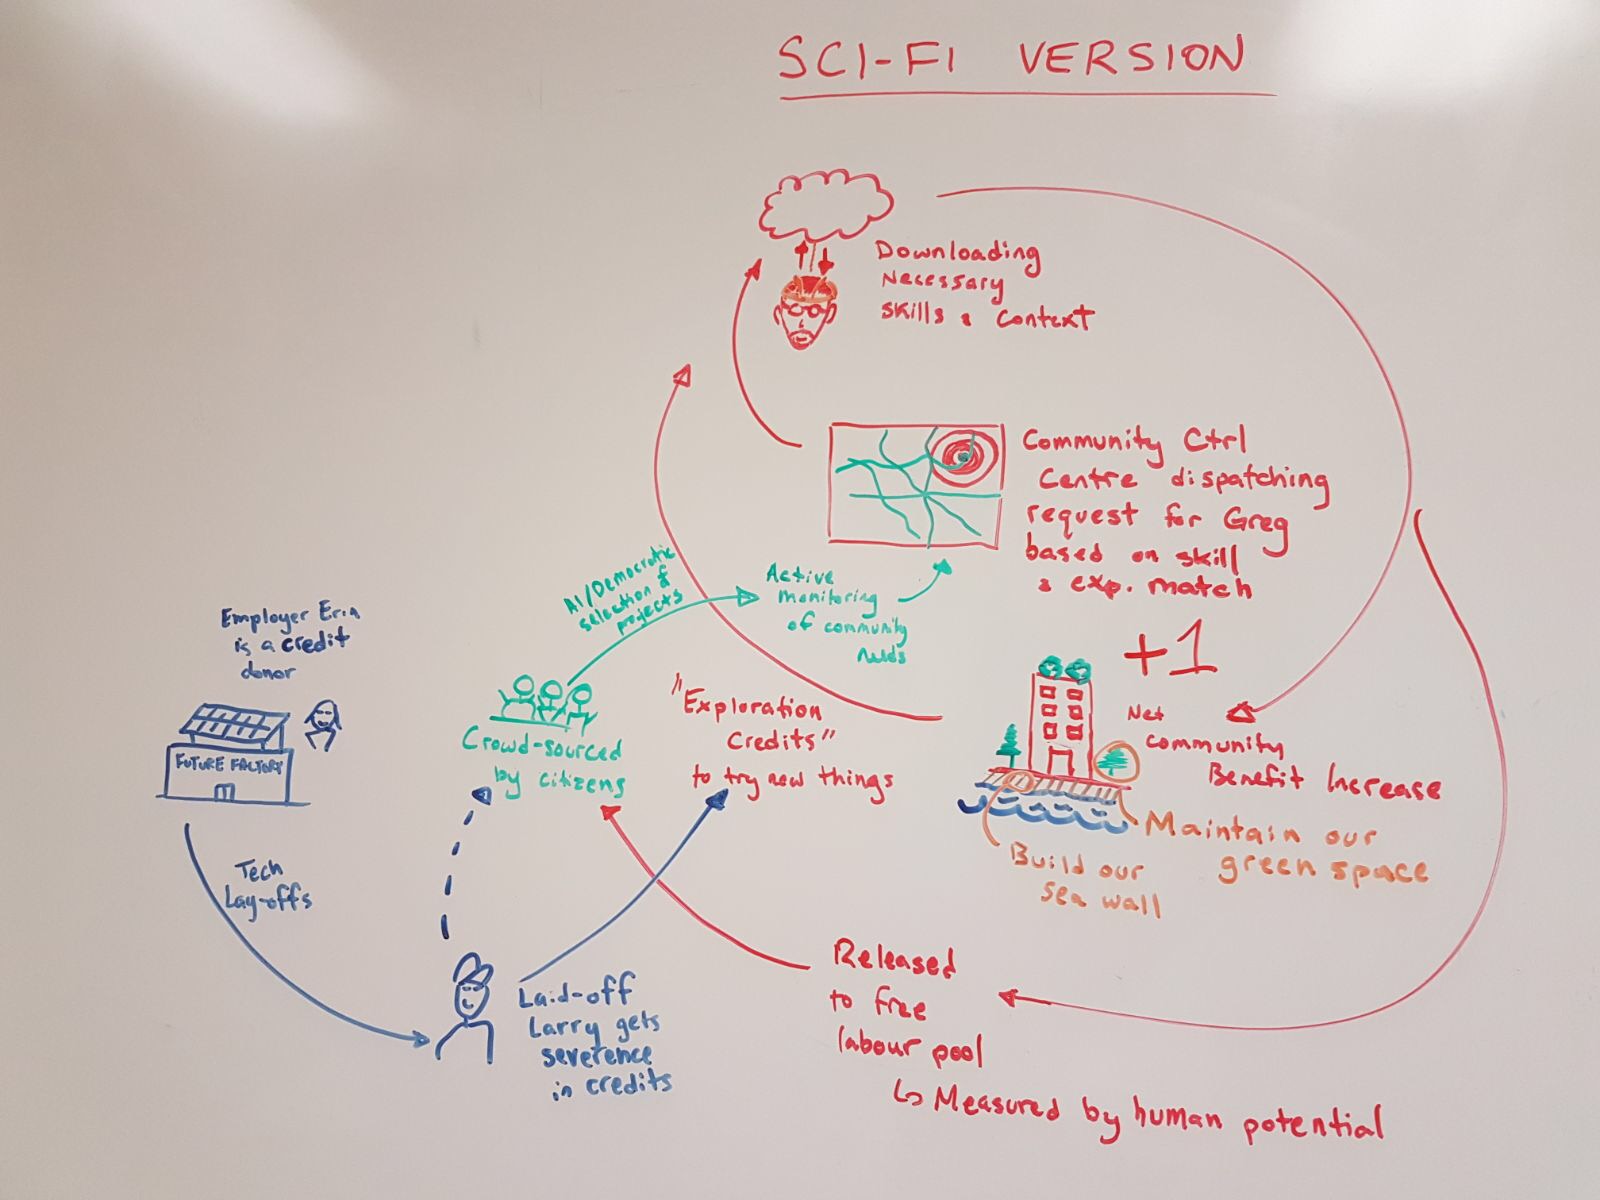 SCI-FI VERSION
Downloading
Necessary
skills & context
Community Ctrl
Centre dispatching
request for Greg
based on skill
& exp. match
AI/Democratic
selection of
projects
Active
monitoring
of community
needs
Employer Erin
is a credit
donor
FUTURE FACTORY
Tech
Lay-offs
Crowd-sourced
by citizens
"Exploration
Credits"
to try new things
+1
Net
community
Benefit Increase
Maintain our
green space
Build our
sea wall
Laid-off
Larry gets
severence
in credits
Released
to free
labour pool
↳ Measured by human potential